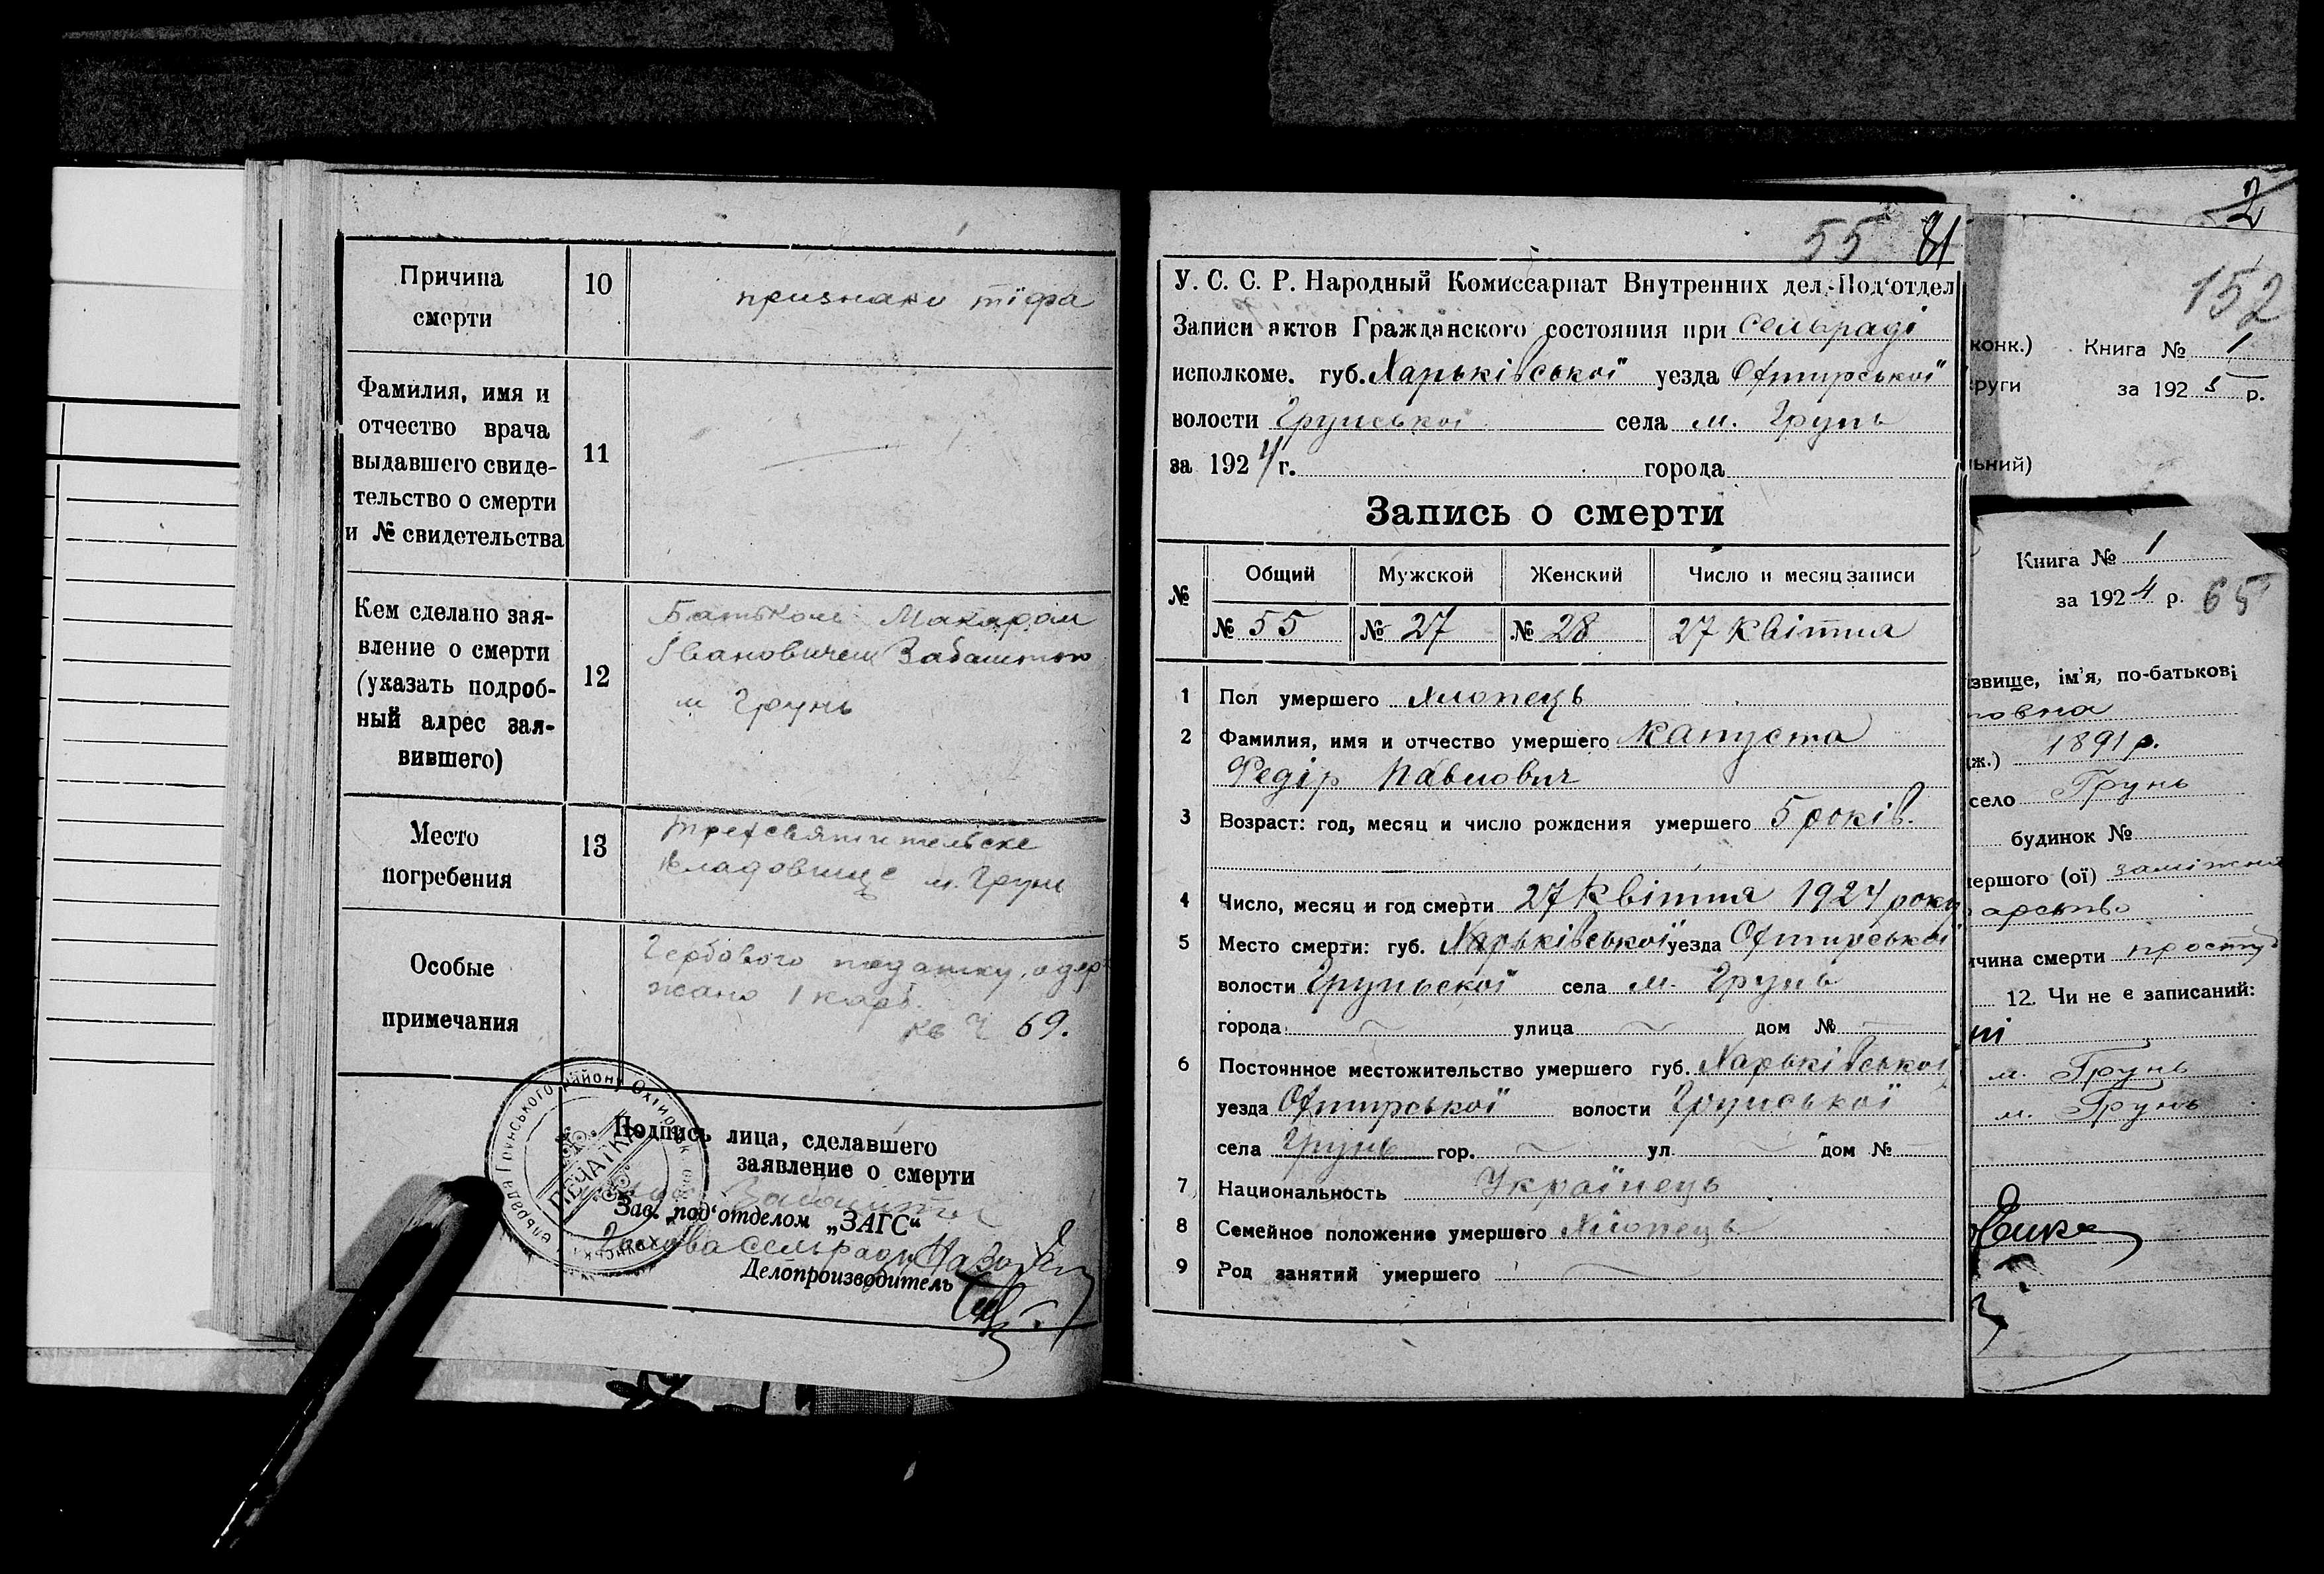 Причина
смерти
10
признаки тїфа
Фамилия, имя и
отчество врача
выдавшего свиде-
тельство о смерти
и № свидетельства
11
Кем сделано зая-
вление о смерти
(указать подроб-
ный адрес зая-
вившего)
12
Батьком Макаром
Івановичем Забаштою
м Грунь
Место
погребения
13
Трехсвятительске
кладовище м. Грунь
Особые
примечания
Гербового податку одер
жано 1 карб.
кв Ч 69.
Подпись лица, сделавшего
заявление о смерти
Зав. под'отделом „ЗАГС“
Голова сельради
Делопроизводитель
ПЕЧАТКА
55 81
У. С. С. Р. Народный Комиссариат Внутренних дел. Под'отдел
Записи актов Гражданского состояния при сельраді
исполкоме. губ. Харьківської уезда Охтирської
волости Груньської села м. Грунь
за 1924 г. города
Запись о смерти
№ Общий Мужской Женский Число и месяц записи
№ 55 № 27 № 28 27 квітня
1 Пол умершего Хлопець
2 Фамилия, имя и отчество умершего Капуста
Федір Павлович
3 Возраст: год, месяц и число рождения умершего 5 років.
4 Число, месяц и год смерти 27 квітня 1924 року
5 Место смерти: губ. Харьківської уезда Охтирської
волости Груньской села м. Грунь
города улица дом №
6 Посточнное местожительство умершего губ. Харьківської
уезда Охтирської волости Груньської
села Грунь гор. ул. дом №
7 Национальность Українець
8 Семейное положение умершего Хлопець
9 Род занятий умершего
2
152
конк.) Книга № 1
руги за 1925 р.
ьний)
Книга № 1
за 1924 р. 65
звище, ім'я, по-батькові
овна
дж.) 1891 р.
село Грунь
будинок №
мершого (ої) заміжня
арство
ичина смерти простуд
12. Чи не є записаний:
м. Грунь
м. Грунь